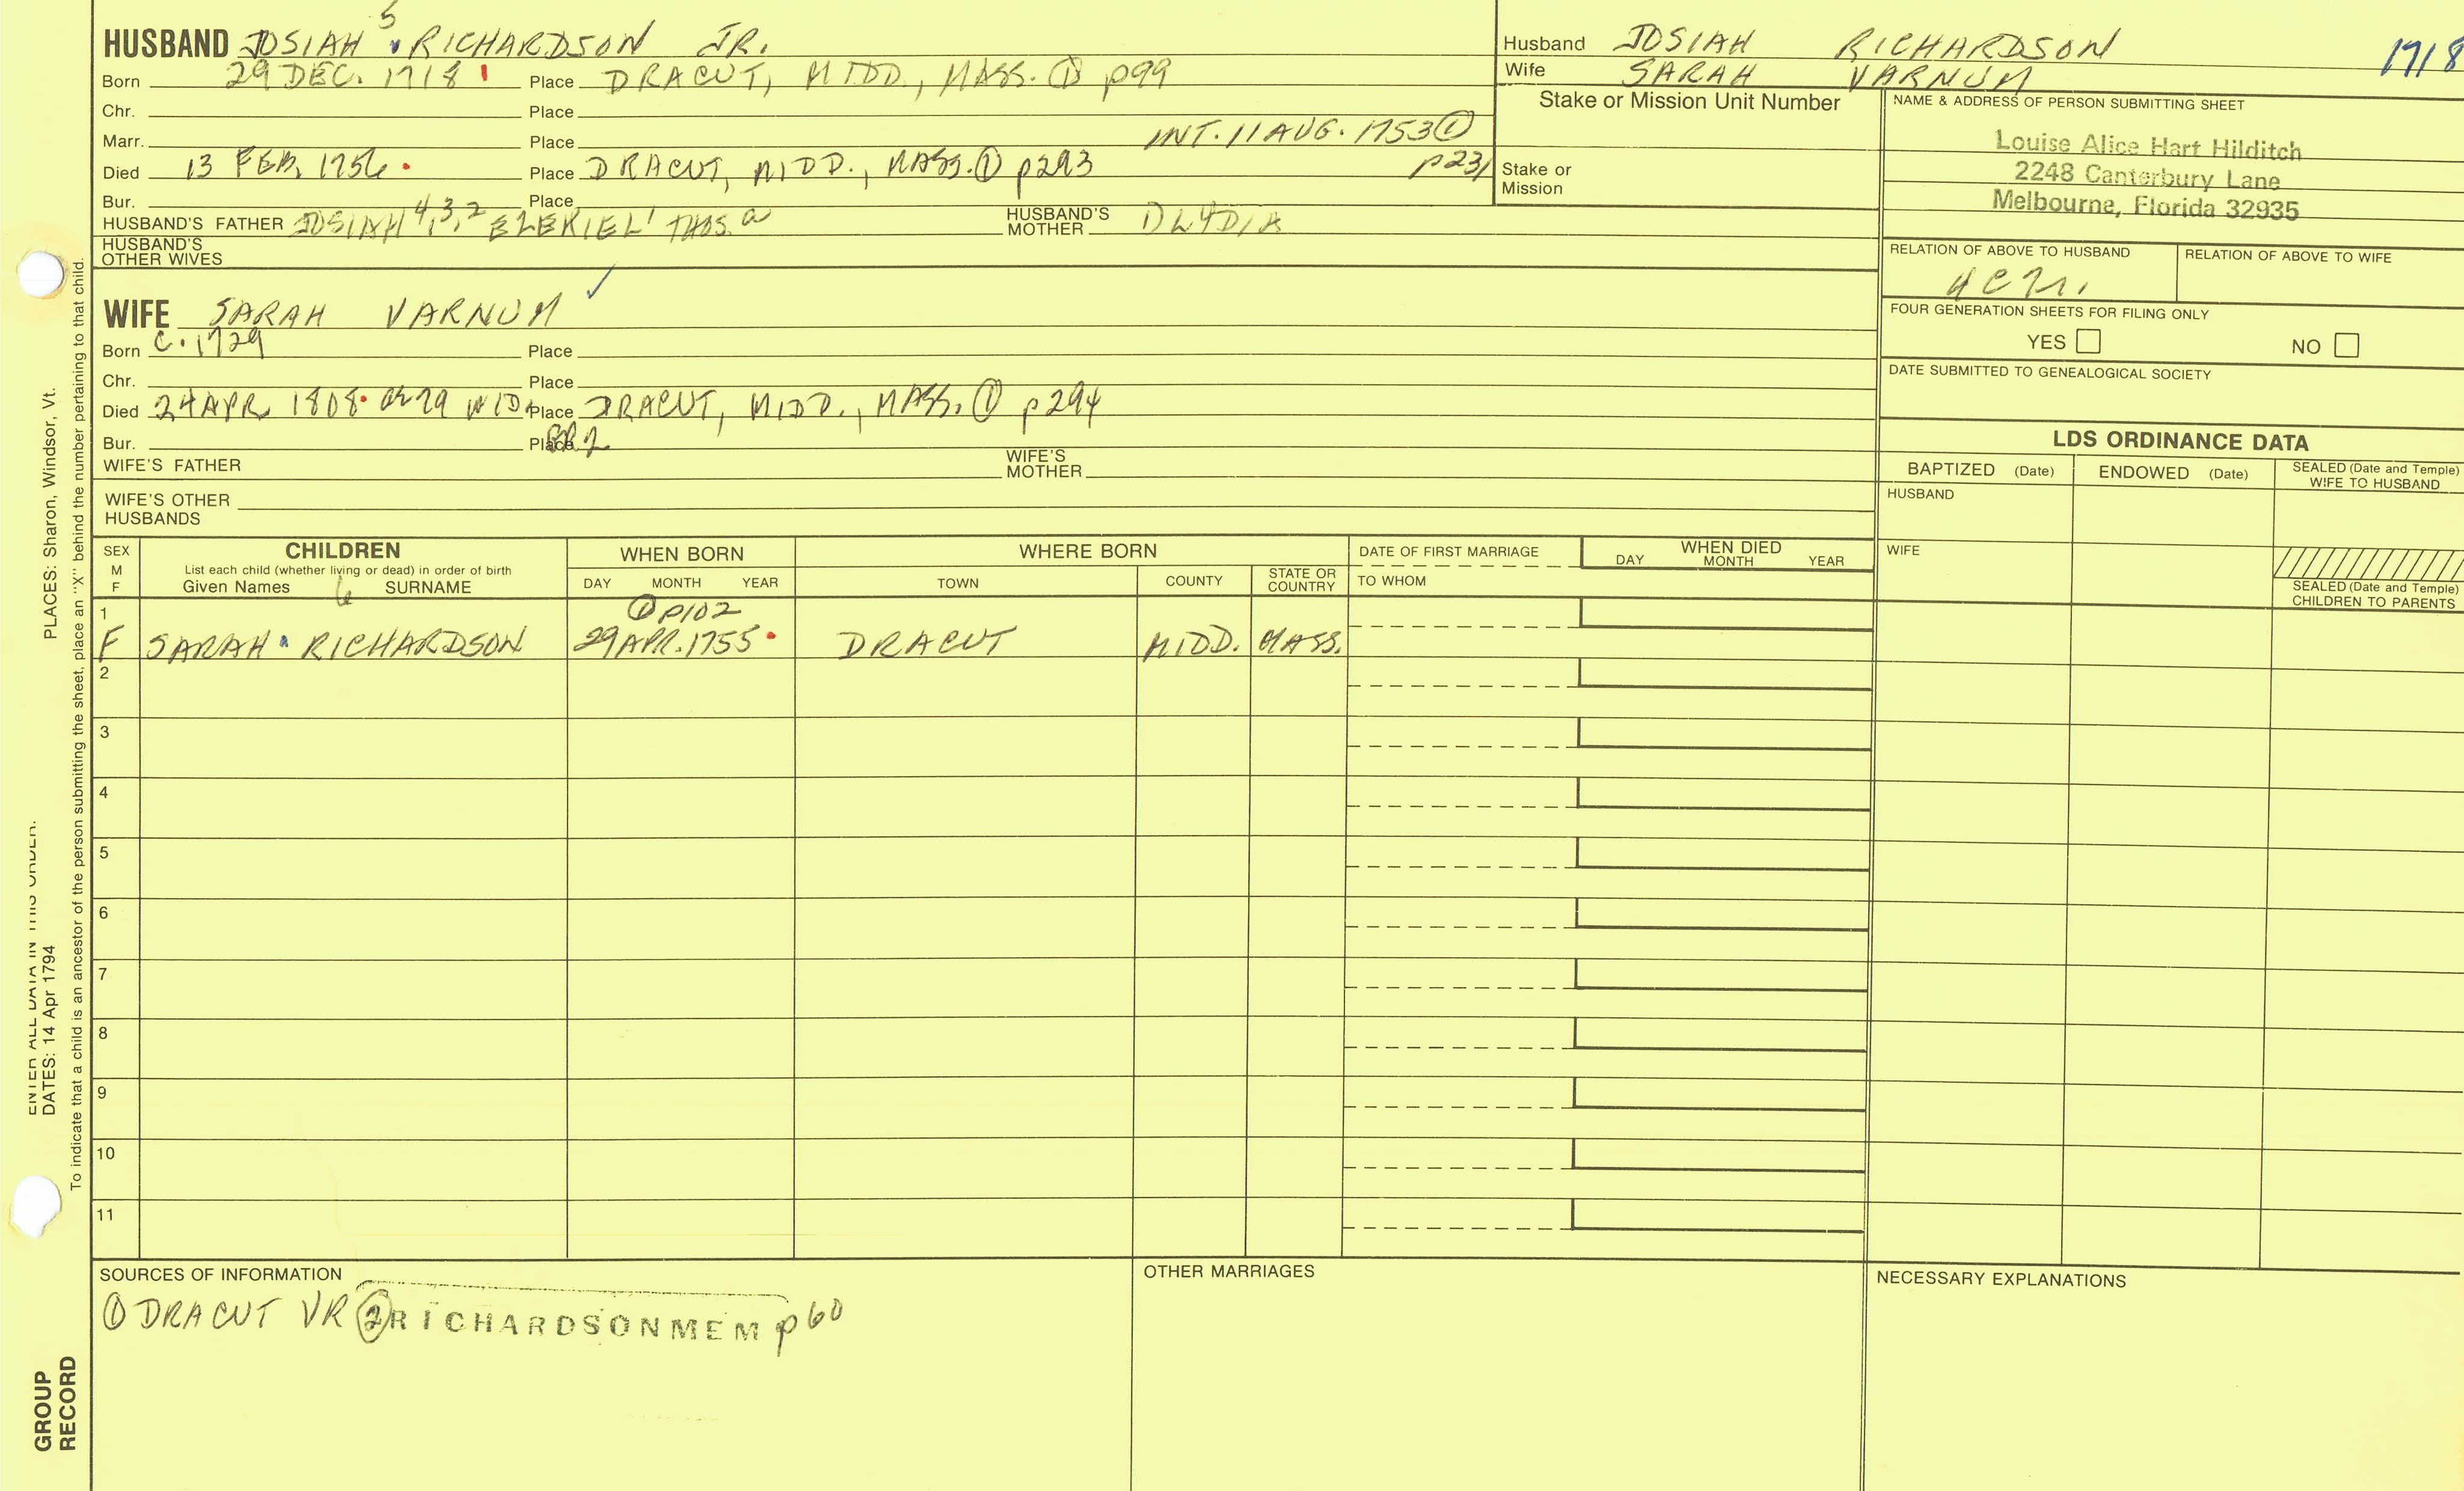 HUSBAND JOSIAH 5 RICHARDSON JR.
Born 29 DEC. 1718 Place DRACUT, MIDD., MASS. ① p99
Chr. Place
Marr. Place INT. 11 AUG. 1753 ① p231
Died 13 FEB. 1756 Place DRACUT, MIDD., MASS. ① p293
Bur. Place
HUSBAND'S FATHER JOSIAH 4,3,2 EZEKIEL 1 THOS. a HUSBAND'S MOTHER LYDIA
HUSBAND'S OTHER WIVES
WIFE SARAH VARNUM ✓
Born C. 1729 Place
Chr. Place
Died 24 APR 1808 79 WID. Place DRACUT, MIDD., MASS. ① p294
Bur. Place
WIFE'S FATHER WIFE'S MOTHER
WIFE'S OTHER HUSBANDS
Husband JOSIAH RICHARDSON 1718
Wife SARAH VARNUM
Stake or Mission Unit Number
Stake or Mission
NAME & ADDRESS OF PERSON SUBMITTING SHEET
Louise Alice Hart Hilditch
2248 Canterbury Lane
Melbourne, Florida 32935
RELATION OF ABOVE TO HUSBAND RELATION OF ABOVE TO WIFE
FOUR GENERATION SHEETS FOR FILING ONLY
YES NO
DATE SUBMITTED TO GENEALOGICAL SOCIETY
LDS ORDINANCE DATA
BAPTIZED (Date) ENDOWED (Date) SEALED (Date and Temple) WIFE TO HUSBAND
HUSBAND
WIFE
SEALED (Date and Temple) CHILDREN TO PARENTS
SEX M F CHILDREN WHEN BORN WHERE BORN DATE OF FIRST MARRIAGE WHEN DIED
List each child (whether living or dead) in order of birth
Given Names 6 SURNAME DAY MONTH YEAR TOWN COUNTY STATE OR COUNTRY TO WHOM DAY MONTH YEAR
1 ① p102
F SARAH RICHARDSON 29 APR. 1755 DRACUT MIDD. MASS.
2
3
4
5
6
7
8
9
10
11
SOURCES OF INFORMATION OTHER MARRIAGES NECESSARY EXPLANATIONS
① DRACUT VR ② RICHARDSONMEM p60
PLACES: Sharon, Windsor, Vt.
ENTER ALL DATA IN THIS ORDER:
DATES: 14 Apr 1794
To indicate that a child is an ancestor of the person submitting the sheet, place an "X" behind the number pertaining to that child.
GROUP
RECORD